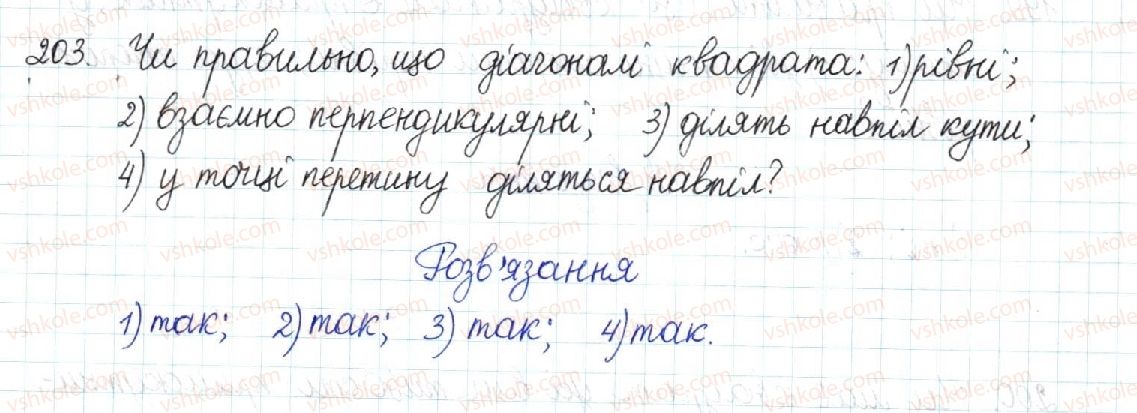 203. Чи правильно, що діагоналі квадрата: 1) рівні;
2) взаємно перпендикулярні; 3) ділять навпіл кути;
4) у точці перетину діляться навпіл?
Розв'язання
1) так; 2) так; 3) так; 4) так.